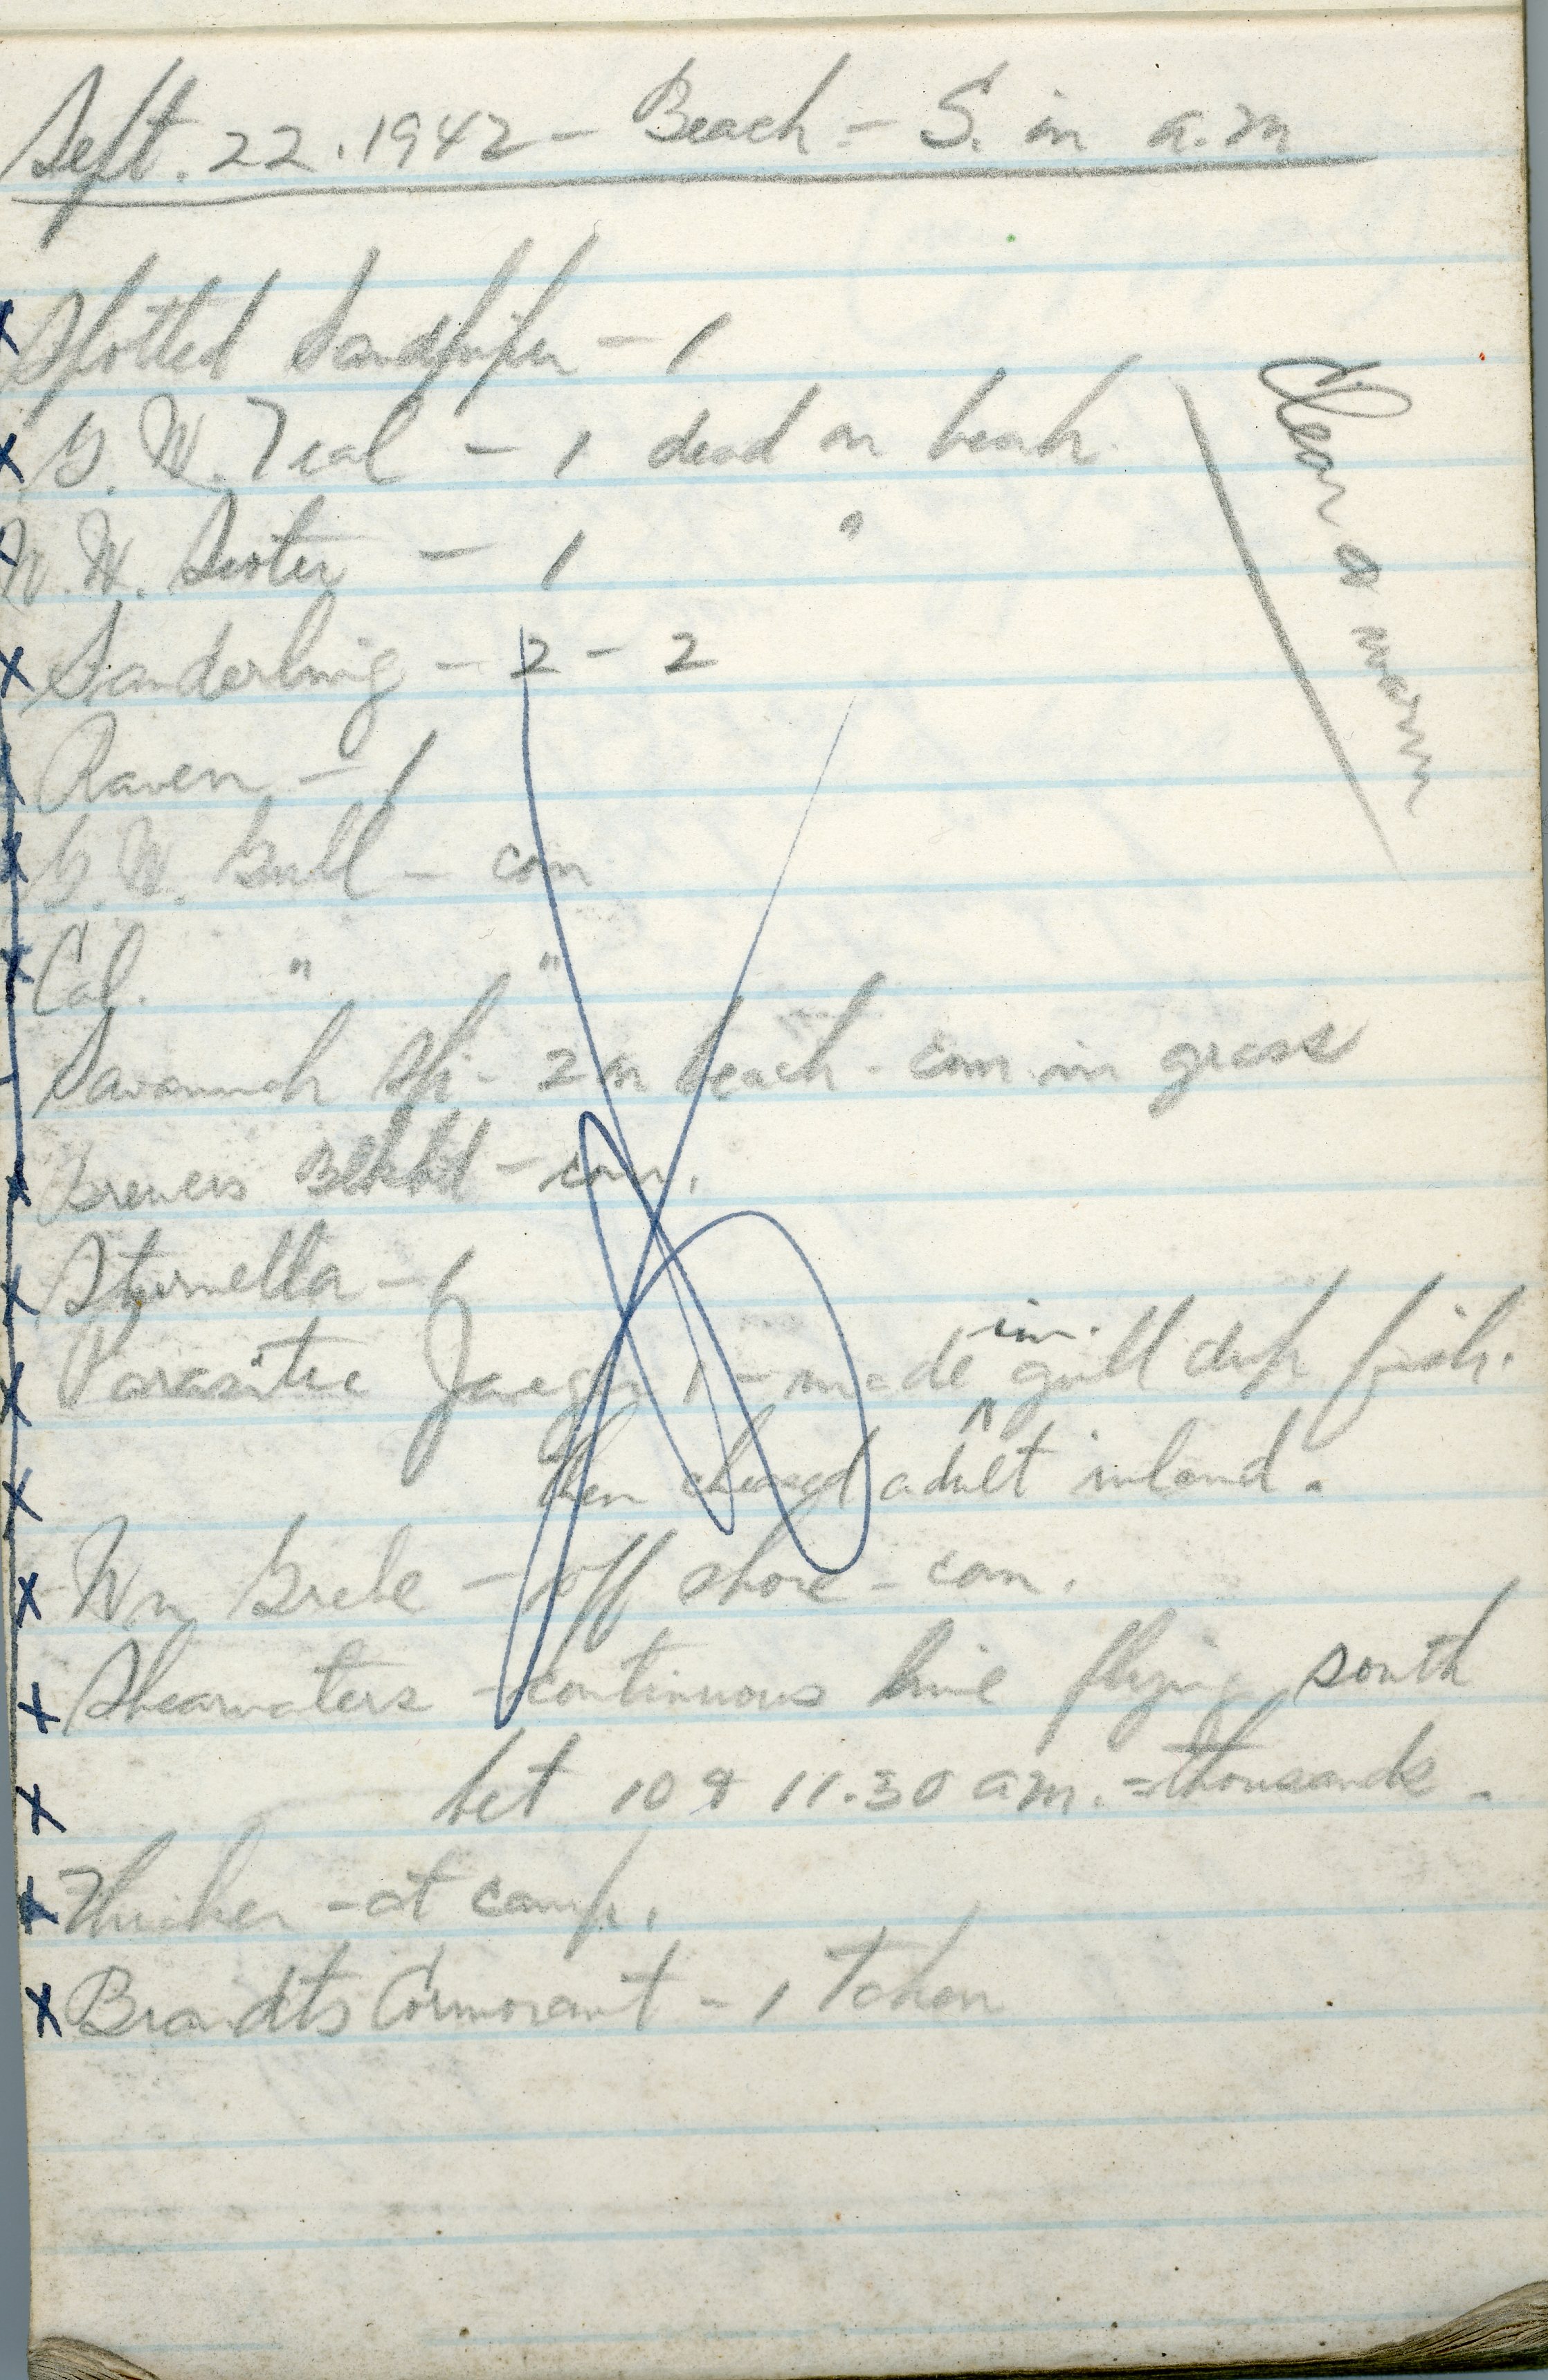 Sept. 22. 1942 - Beach - S. in a.m
Spotted Sandpiper - 1
G. W. Teal - 1 dead on beach.
W. W. Scoter - 1 "
Sanderling - 2 - 2
Raven - 1
G. W. Gull - com
Cal. " "
Savannah Sp. - 2 on beach - com. in grass
Brewers Blkbd - com.
Sturnella - 1
Parasitic Jaeger 1 - made im. gull drop fish.
then chased adult inland.
Wn Grebe - off shore - com.
Shearwaters - continuous line flying south
bet 10 & 11.30 am. = thousands -
Flicker - at camp.
Brandts Cormorant - 1 Taken
Clear & warm